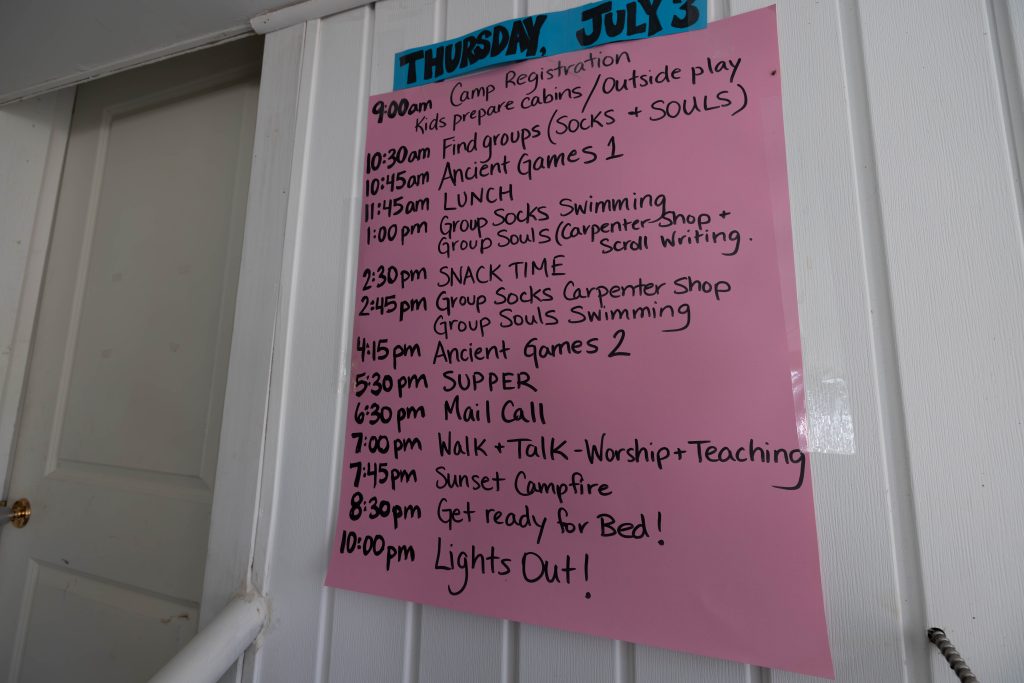 THURSDAY, JULY 3
9:00am Camp Registration
Kids prepare cabins/Outside play
10:30am Find groups (SOCKS + SOULS)
10:45am Ancient Games 1
11:45am LUNCH
1:00 pm Group Socks Swimming
Group Souls (Carpenter Shop +
Scroll Writing.
2:30pm SNACK TIME
2:45pm Group Socks Carpenter Shop
Group Souls Swimming
4:15 pm Ancient Games 2
5:30pm SUPPER
6:30pm Mail Call
7:00 pm Walk + Talk - Worship + Teaching
7:45pm Sunset Campfire
8:30pm Get ready for Bed!
10:00pm Lights Out!